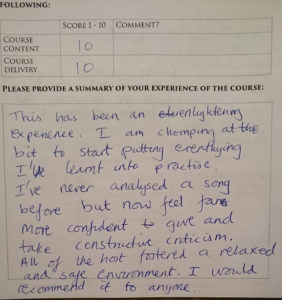 FOLLOWING:
SCORE 1 - 10 COMMENT?
COURSE CONTENT 10
COURSE DELIVERY 10
PLEASE PROVIDE A SUMMARY OF YOUR EXPERIENCE OF THE COURSE:
This has been an enlightening
experience. I am chomping at the
bit to start putting everything
I've learnt into practise.
I've never analysed a song
before but now feel far
more confident to give and
take constructive criticism.
All of the host fostered a relaxed
and safe environment. I would
recommend it to anyone.